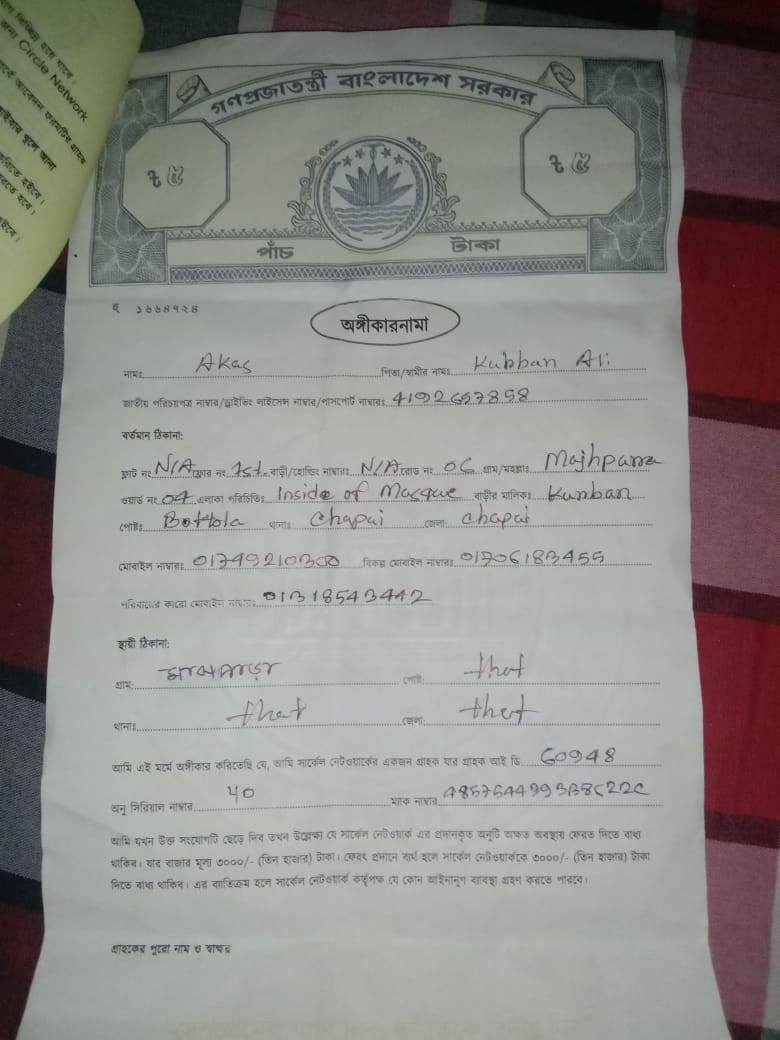 সার্কেল
জন্য Circle Network
গণপ্রজাতন্ত্রী বাংলাদেশ সরকার
৳ ৫
৳ ৫
পাঁচ টাকা
হ ১৬৬৪৭২৪
অঙ্গীকারনামা
নামঃ Akas পিতা/স্বামীর নামঃ Kubban Ali
জাতীয় পরিচয়পত্র নাম্বার/ড্রাইভিং লাইসেন্স নাম্বার/পাসপোর্ট নাম্বারঃ 4192657858
বর্তমান ঠিকানা:
ফ্লাট নং N/A ফ্লোর নং 1st বাড়ী/হোল্ডিং নাম্বারঃ N/A রোড নং 06 গ্রাম/মহল্লাঃ Majhparra
ওয়ার্ড নং 04 এলাকা পরিচিতিঃ Inside of Masque বাড়ীর মালিকঃ Kunban
পোষ্টঃ Bottola থানাঃ Chapai জেলা: Chapai
মোবাইল নাম্বারঃ 01749210300 বিকল্প মোবাইল নাম্বারঃ 01706183455
পরিবারের কারো মোবাইল নাম্বারঃ 01318543442
স্থায়ী ঠিকানা:
গ্রাম: মাঝপাড়া পোষ্ট: that
থানাঃ that জেলা: that
আমি এই মর্মে অঙ্গীকার করিতেছি যে, আমি সার্কেল নেটওয়ার্কের একজন গ্রাহক যার গ্রাহক আই ডি 60948
অনু সিরিয়াল নাম্বার 40 ম্যাক নাম্বার 4857544993B8C22C
আমি যখন উক্ত সংযোগটি ছেড়ে দিব তখন উল্লেখ্য যে সার্কেল নেটওয়ার্ক এর প্রদানকৃত অনুটি অক্ষত অবস্থায় ফেরত দিতে বাধ্য
থাকিব। যার বাজার মূল্য ৩০০০/- (তিন হাজার) টাকা। ফেরৎ প্রদানে ব্যর্থ হলে সার্কেল নেটওয়ার্ককে ৩০০০/- (তিন হাজার) টাকা
দিতে বাধ্য থাকিব। এর ব্যতিক্রম হলে সার্কেল নেটওয়ার্ক কর্তৃপক্ষ যে কোন আইনানুগ ব্যবস্থা গ্রহণ করতে পারবে।
গ্রাহকের পুরো নাম ও স্বাক্ষর